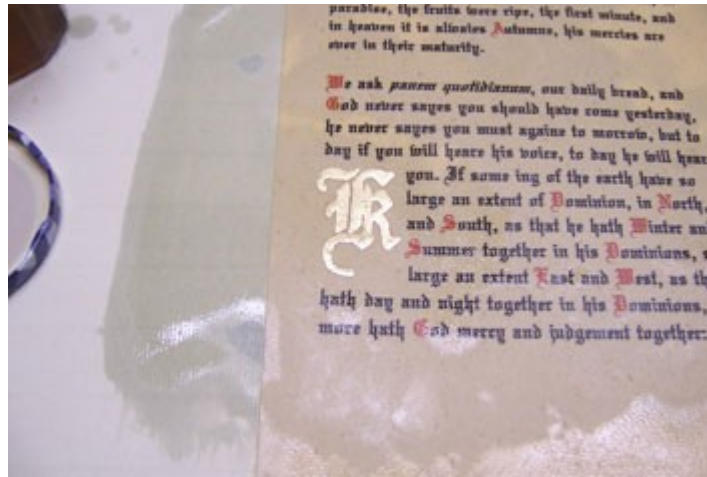 paradise, the fruits were ripe, the first minute, and
in heaven it is alwaies Autumne, his mercies are
ever in their maturity.
We ask panem quotidianum, our daily bread, and
God never sayes you should have come yesterday,
he never sayes you must againe to morrow, but to
day if you will heare his voice, to day he will hear
K
you. If some ing of the earth have so
large an extent of Dominion, in North,
and South, as that he hath Winter an
Summer together in his Dominions, s
large an extent East and West, as th
hath day and night together in his Dominions,
more hath God mercy and judgement together: